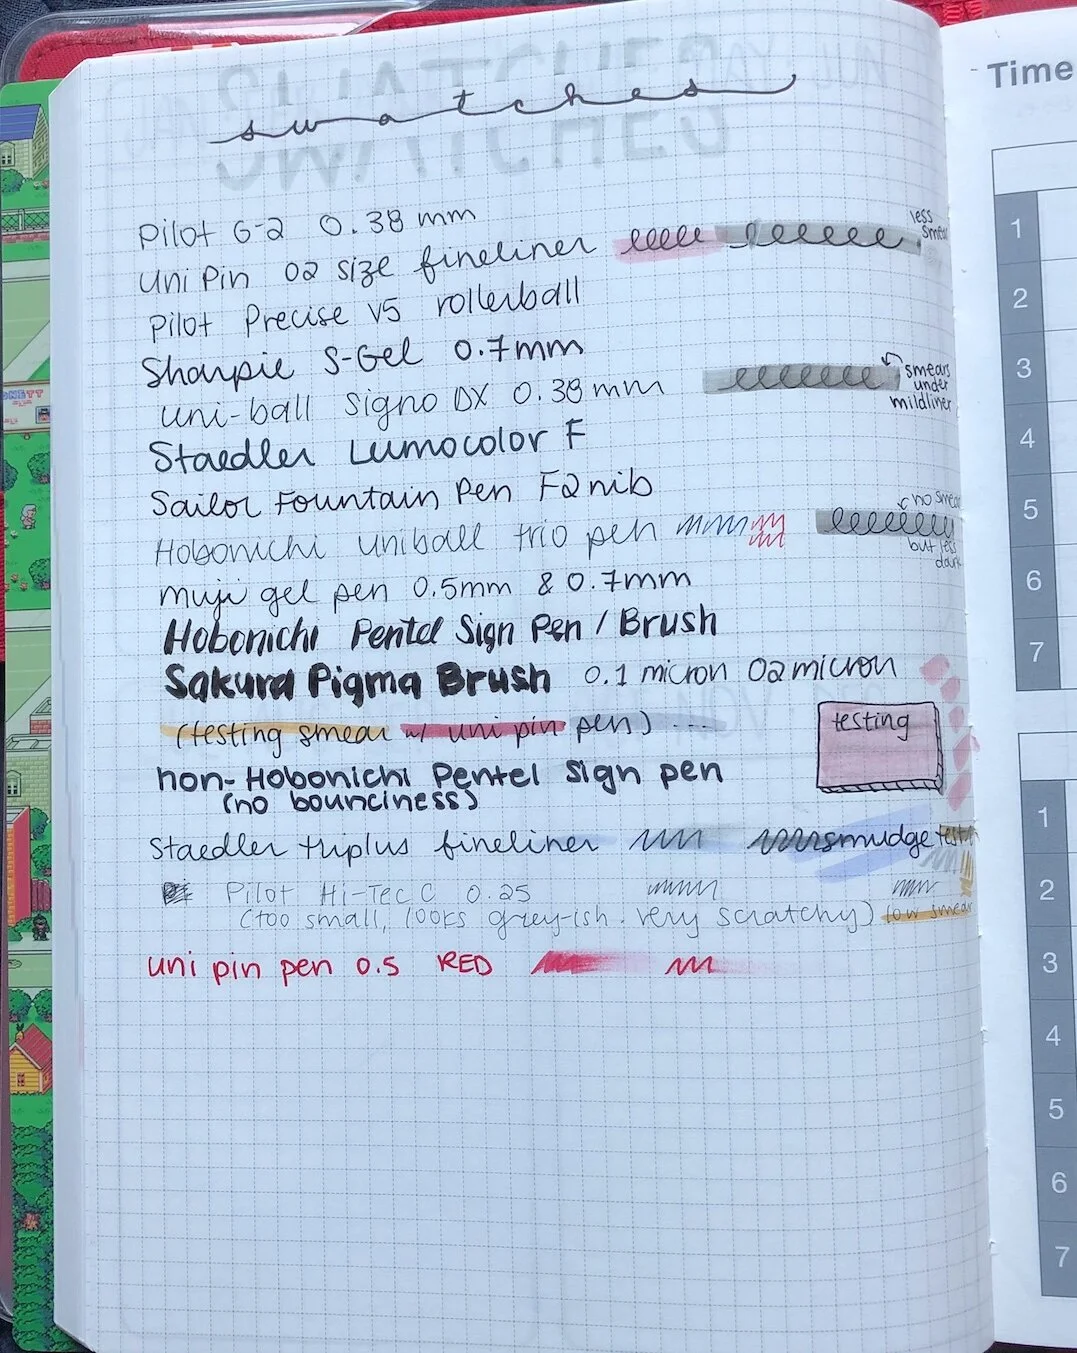 swatches
Pilot G-2 0.38 mm
Uni Pin 02 size fineliner
less smear
Pilot Precise V5 rollerball
Sharpie S-Gel 0.7mm
uni-ball Signo DX 0.38 mm
smears
under
mildliner
Staedler Lumocolor F
Sailor Fountain Pen F2 nib
Hobonichi uniball trio pen
no smear
but less
dark
muji gel pen 0.5mm & 0.7mm
Hobonichi Pentel Sign Pen / Brush
Sakura Pigma Brush 0.1 micron 02 micron
(testing smear w/ uni pin pen) ...
testing
non-Hobonichi Pentel Sign pen
(no bounciness)
Staedler triplus fineliner smudge test
Pilot Hi-Tec C 0.25
(too small, looks grey-ish. very scratchy) low smear
uni pin pen 0.5 RED
Time
1
2
3
4
5
6
7
1
2
3
4
5
6
7